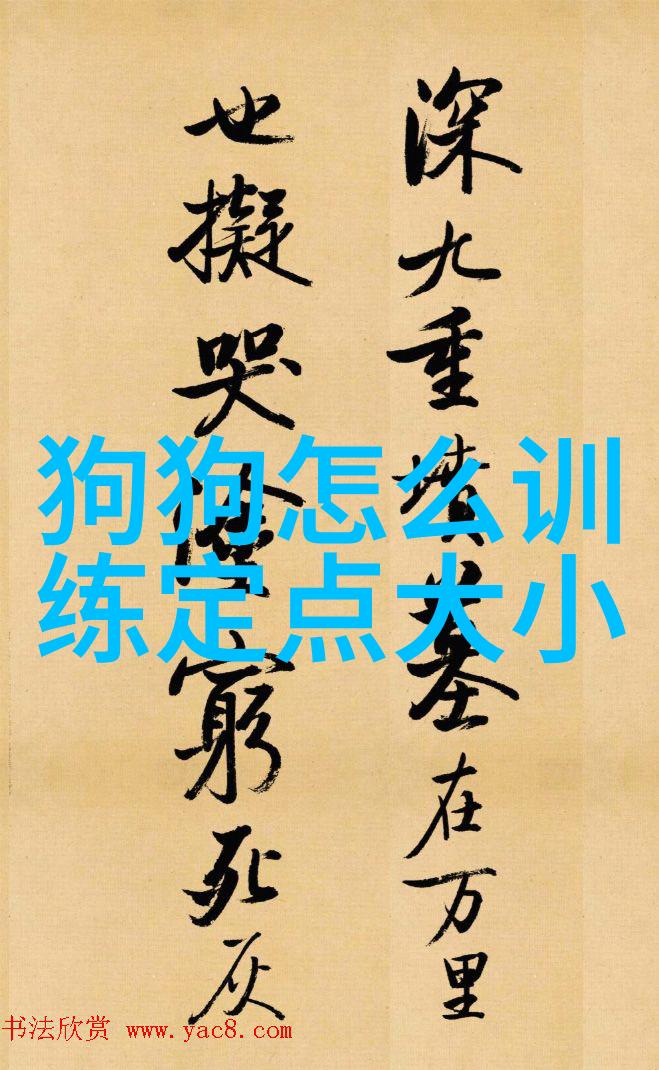 深九重墳墓在万里
也擬哭塗窮死灰
狗狗怎么训
练定点大小
书法欣赏 www.yac8.com